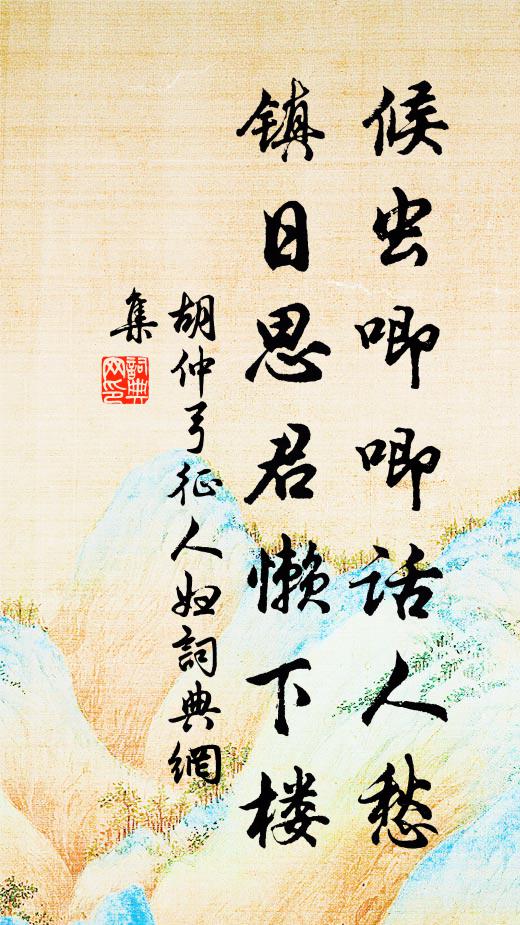 候虫唧唧话人愁
镇日思君懒下楼
胡仲弓征人妇詞典網
集
詞典网印